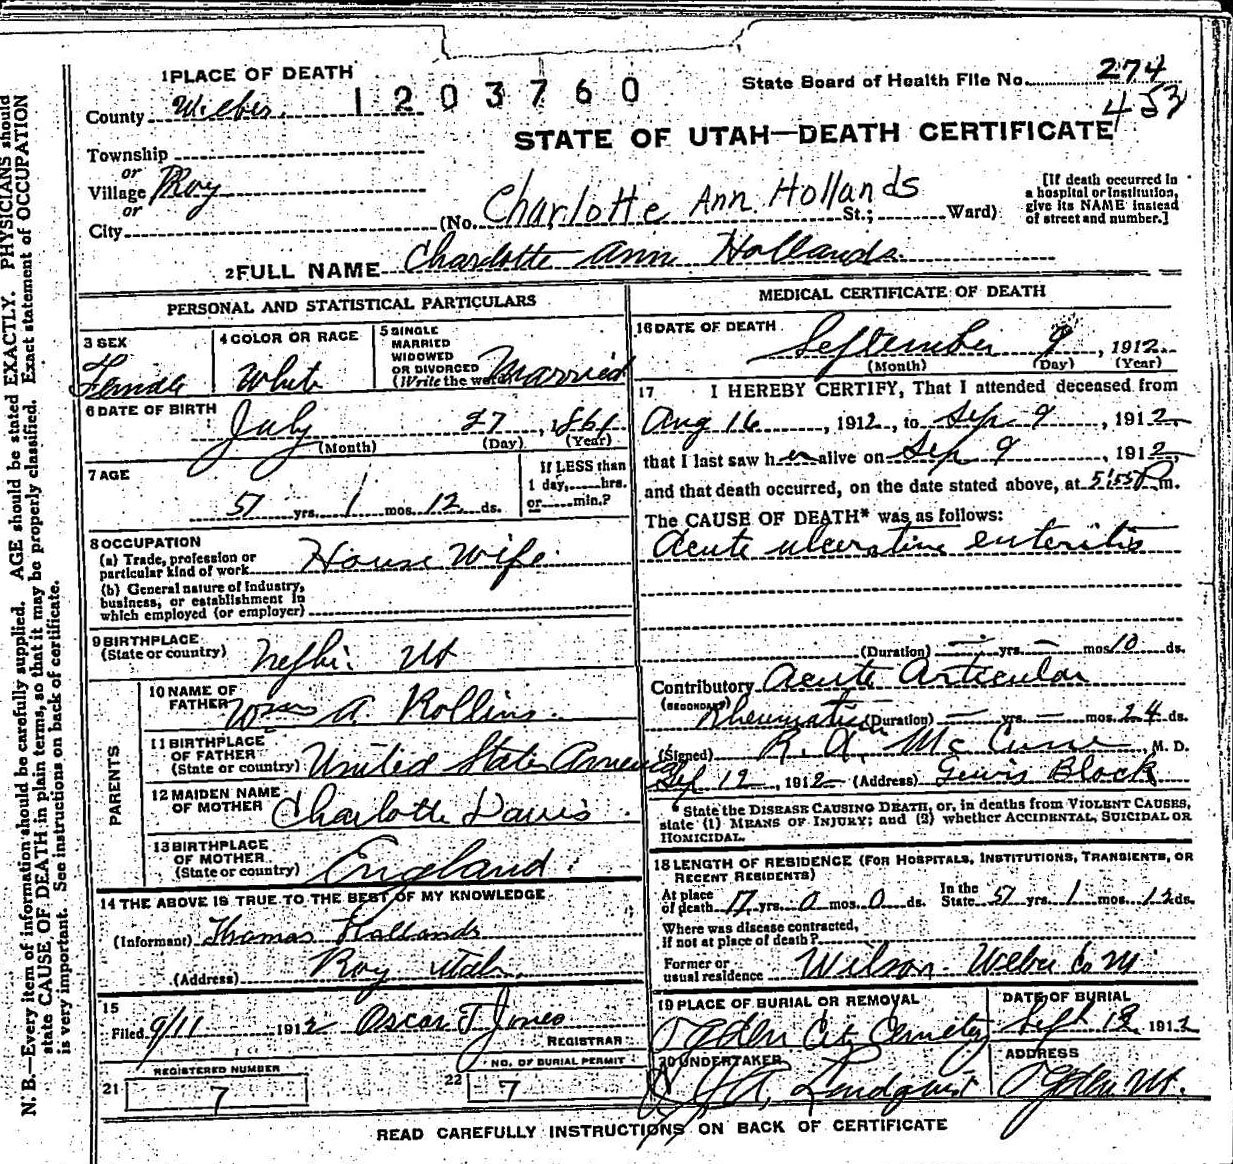 1 PLACE OF DEATH
County Weber. 1203760
State Board of Health File No. 274
453
STATE OF UTAH—DEATH CERTIFICATE
Township
or
Village Roy
or
City
(No. Charlotte Ann Hollands St.; Ward)
[If death occurred in
a hospital or institution,
give its NAME instead
of street and number.]
2 FULL NAME Charlotte Ann Hollands.
PERSONAL AND STATISTICAL PARTICULARS
3 SEX
Female
4 COLOR OR RACE
White
5 SINGLE
MARRIED
WIDOWED
OR DIVORCED
(Write the word) Married
6 DATE OF BIRTH
July 27, 1861
(Month) (Day) (Year)
7 AGE
51 yrs. 1 mos. 12 ds.
If LESS than
1 day, hrs.
or min.?
8 OCCUPATION
(a) Trade, profession or
particular kind of work House Wife
(b) General nature of industry,
business, or establishment in
which employed (or employer)
9 BIRTHPLACE
(State or country) Nephi Ut
PARENTS
10 NAME OF
FATHER Wm A. Rollins.
11 BIRTHPLACE
OF FATHER
(State or country) United States America
12 MAIDEN NAME
OF MOTHER Charlotte Davis
13 BIRTHPLACE
OF MOTHER
(State or country) England.
14 THE ABOVE IS TRUE TO THE BEST OF MY KNOWLEDGE
(Informant) Thomas Hollands
(Address) Roy Utah.
15
Filed 9/11 1912 Oscar T Jones
REGISTRAR
REGISTERED NUMBER
21 7
NO. OF BURIAL PERMIT
22 7
MEDICAL CERTIFICATE OF DEATH
16 DATE OF DEATH
September 9, 1912
(Month) (Day) (Year)
17 I HEREBY CERTIFY, That I attended deceased from
Aug 16, 1912, to Sep 9, 1912
that I last saw her alive on Sep 9, 1912,
and that death occurred, on the date stated above, at 5:55 P m.
The CAUSE OF DEATH* was as follows:
Acute ulcerative enteritis
(Duration) — yrs. — mos. 10 ds.
Contributory Acute Articular
(SECONDARY) Rheumatism (Duration) — yrs. — mos. 24 ds.
(Signed) R. A. McCune, M. D.
Sep 12, 1912 (Address) Block
*State the DISEASE CAUSING DEATH, or, in deaths from VIOLENT CAUSES,
state (1) MEANS OF INJURY; and (2) whether ACCIDENTAL, SUICIDAL OR
HOMICIDAL.
18 LENGTH OF RESIDENCE (FOR HOSPITALS, INSTITUTIONS, TRANSIENTS, OR
RECENT RESIDENTS)
At place
of death 17 yrs. 0 mos. 0 ds. In the
State 51 yrs. 1 mos. 12 ds.
Where was disease contracted,
if not at place of death?
Former or
usual residence Wilson. Weber Co Ut
19 PLACE OF BURIAL OR REMOVAL
Ogden City Cemetery
DATE OF BURIAL
Sept 1912
20 UNDERTAKER
Lindquist
ADDRESS
Ogden Ut.
READ CAREFULLY INSTRUCTIONS ON BACK OF CERTIFICATE
N. B.—Every item of information should be carefully supplied. AGE should be stated EXACTLY. PHYSICIANS should
state CAUSE OF DEATH in plain terms, so that it may be properly classified. Exact statement of OCCUPATION
is very important. See instructions on back of certificate.